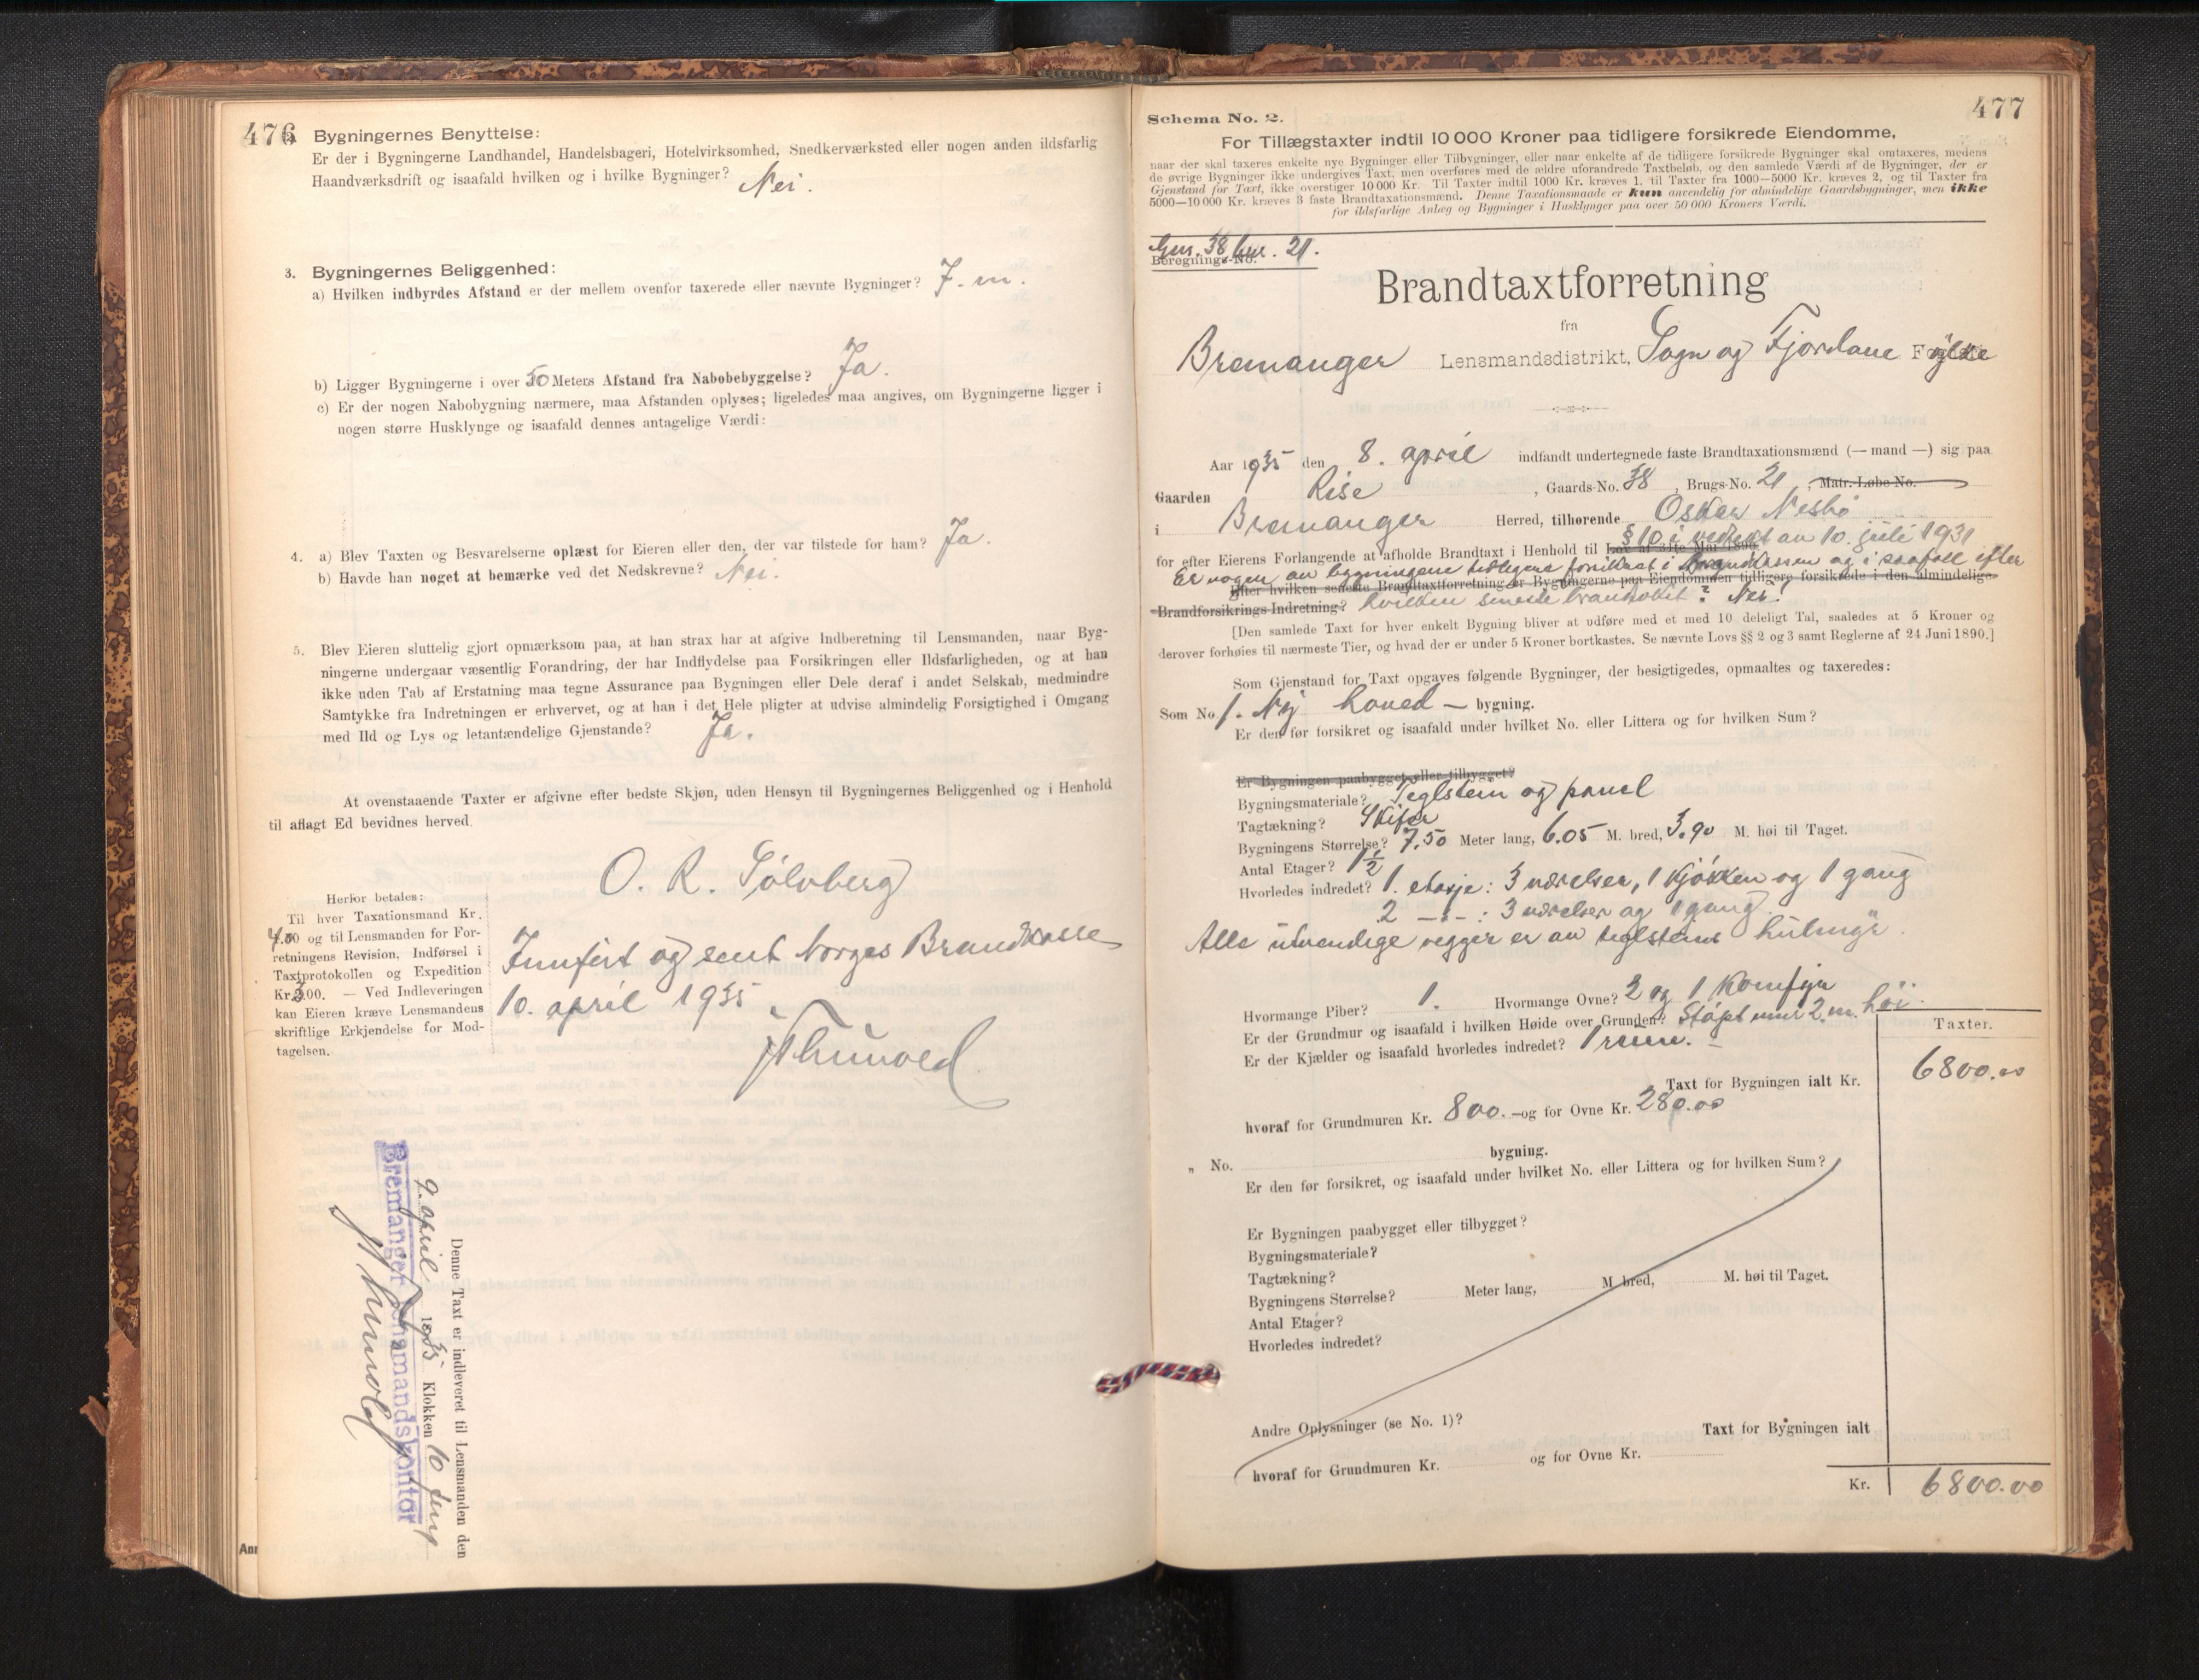 476
2. Bygningernes Benyttelse:
Er der i Bygningerne Landhandel, Handelsbageri, Hotelvirksomhed, Snedkerværksted eller nogen anden ildsfarlig
Haandværksdrift og isaafald hvilken og i hvilke Bygninger? Nei.
3. Bygningernes Beliggenhed:
a) Hvilken indbyrdes Afstand er der mellem ovenfor taxerede eller nævnte Bygninger? 7. m.
b) Ligger Bygningerne i over 50 Meters Afstand fra Nabobebyggelse? Ja.
c) Er der nogen Nabobygning nærmere, maa Afstanden oplyses; ligeledes maa angives, om Bygningerne ligger i
nogen større Husklynge og isaafald dennes antagelige Værdi:
4. a) Blev Taxten og Besvarelserne oplæst for Eieren eller den, der var tilstede for ham? Ja.
b) Havde han noget at bemærke ved det Nedskrevne? Nei.
5. Blev Eieren sluttelig gjort opmærksom paa, at han strax har at afgive Indberetning til Lensmanden, naar Byg-
ningerne undergaar væsentlig Forandring, der har Indflydelse paa Forsikringen eller Ildsfarligheden, og at han
ikke uden Tab af Erstatning maa tegne Assurance paa Bygningen eller Dele deraf i andet Selskab, medmindre
Samtykke fra Indretningen er erhvervet, og at han i det Hele pligter at udvise almindelig Forsigtighed i Omgang
med Ild og Lys og letantændelige Gjenstande? Ja.
At ovenstaaende Taxter er afgivne efter bedste Skjøn, uden Hensyn til Bygningernes Beliggenhed og i Henhold
til aflagt Ed bevidnes herved.
O. R. Sølvberg
Herfor betales:
Til hver Taxationsmand Kr.
4.00 og til Lensmanden for For-
retningens Revision, Indførsel i
Taxtprotokollen og Expedition
Kr. 3.00. — Ved Indleveringen
kan Eieren kræve Lensmandens
skriftlige Erkjendelse for Mod-
tagelsen.
Innført og sent Norges Brandkasse
10. april 1935.
Denne Taxt er indleveret til Lensmanden den
9. april 1935 Klokken 10 form
Bremanger Lensmandskontor
477
Schema No. 2.
For Tillægstaxter indtil 10 000 Kroner paa tidligere forsikrede Eiendomme,
naar der skal taxeres enkelte nye Bygninger eller Tilbygninger, eller naar enkelte af de tidligere forsikrede Bygninger skal omtaxeres, medens
de øvrige Bygninger ikke undergives Taxt, men overføres med de ældre uforandrede Taxtbeløb, og den samlede Værdi af de Bygninger, der er
Gjenstand for Taxt, ikke overstiger 10 000 Kr. Til Taxter indtil 1000 Kr. kræves 1, til Taxter fra 1000—5000 Kr. kræves 2, og til Taxter fra
5000—10 000 Kr. kræves 3 faste Brandtaxationsmænd. Denne Taxationsmaade er kun anvendelig for almindelige Gaardsbygninger, men ikke
for ildsfarlige Anlæg og Bygninger i Husklynger paa over 50 000 Kroners Værdi.
Gnr. 38 bnr. 21.
Beregnings-No.
Brandtaxtforretning
fra
Bremanger Lensmandsdistrikt, Sogn og Fjordane Fylke
Aar 1935 den 8. april indfandt undertegnede faste Brandtaxationsmænd (— mand —) sig paa
Gaarden Rise, Gaards-No. 38, Brugs-No. 21, Matr.-Løbe-No.
i Bremanger Herred, tilhørende Oskar Nesbø
§ 10 i vedtekt av 10. juli 1931
for efter Eierens Forlangende at afholde Brandtaxt i Henhold til Lov af 31te Mai 1890
Er nogen av bygningene tidligere forsikret i brandkassen og i saafall efter
Efter hvilken seneste Brandtaxtforretning er Bygningerne paa Eiendommen tidligere forsikrede i den almindelige
Brandforsikrings-Indretning? hvilken seneste brandtakst? Nei!
[Den samlede Taxt for hver enkelt Bygning bliver at udføre med et med 10 deleligt Tal, saaledes at 5 Kroner og
derover forhøies til nærmeste Tier, og hvad der er under 5 Kroner bortkastes. Se nævnte Lovs §§ 2 og 3 samt Reglerne af 24 Juni 1890.]
Som Gjenstand for Taxt opgaves følgende Bygninger, der besigtigedes, opmaaltes og taxeredes:
Som No. 1. Ny hoved — bygning.
Er den før forsikret og isaafald under hvilket No. eller Littera og for hvilken Sum?
Er Bygningen paabygget eller tilbygget?
Bygningsmateriale? Teglstein og panel
Tagtækning? Skifer
Bygningens Størrelse? 7.50 Meter lang, 6.05 M. bred, 3.90 M. høi til Taget.
Antal Etager? 1 1/2
Hvorledes indredet? 1. etasje: 3 værelser, 1 kjøkken og 1 gang
2 —"— : 3 værelser og 1 gang.
Alle utvendige vegger er av teglsteins hulmur.
Hvormange Piber? 1. Hvormange Ovne? 2 og 1 komfyr
Er der Grundmur og isaafald i hvilken Høide over Grunden? Støpt mur 2. m. høi.
Er der Kjælder og isaafald hvorledes indredet? 1 rum. —
Taxter.
Taxt for Bygningen ialt Kr. 6800.00
hvoraf for Grundmuren Kr. 800.- og for Ovne Kr. 280.00
" No. bygning.
Er den før forsikret, og isaafald under hvilket No. eller Littera og for hvilken Sum?
Er Bygningen paabygget eller tilbygget?
Bygningsmateriale?
Tagtækning?
Bygningens Størrelse? Meter lang, M. bred, M. høi til Taget.
Antal Etager?
Hvorledes indredet?
Andre Oplysninger (se No. 1)? Taxt for Bygningen ialt
hvoraf for Grundmuren Kr. og for Ovne Kr.
Kr. 6800.00